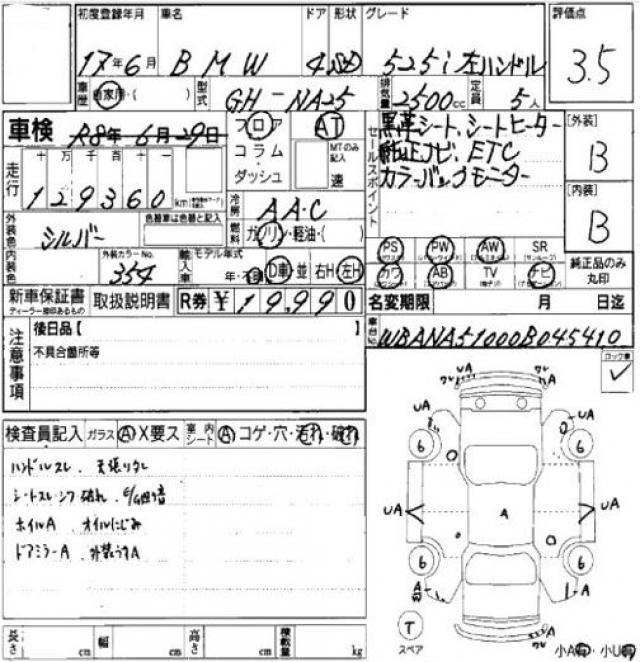 初度登録年月 車名 ドア 形状 グレード 評価点
17年6月 BMW 4 SD 525i 左ハンドル 3.5
車歴 自家用・( ) 型式 GH-NA25 排気量 2500cc 定員 5人
車検 R8年6月29日 フロア AT
コラム MTのみ記入
ダッシュ 速
セールスポイント 黒革シート、シートヒーター
純正ナビ、ETC
カラーバックモニター
[外装] B
[内装] B
走行 十 万 千 百 十 一
129360 km
冷房 AA・C
外装色 シルバー 色替車は色替と記入 燃料 ガソリン・軽油・( )
内装色 外装カラーNo. 354 輸入車 モデル年式 年・不明 D車・並 右H・左H
PS PW AW SR (サンルーフ)
カワ AB TV ナビ
純正品のみ丸印
新車保証書 取扱説明書 R券 ¥19,990 名変期限 月 日迄
ディーラー捺印あるもの
注意事項 後日品【 】
不具合箇所等
車台No. WBANA51000B045410
ロック車 ✓
検査員記入 ガラス A X要ス 室内シート A コゲ・穴・汚れ・破れ
ハンドルスレ、天張りタレ
シートスレ・シワ 破れ、
ホイルA、オイルにじみ
ドアミラーA、外装うすA
UA UA
UA UA
6 6
UA A UA
6 6
A A
T
スペア
小A有・小U有
長さ cm 幅 cm 高さ cm 積載量 kg